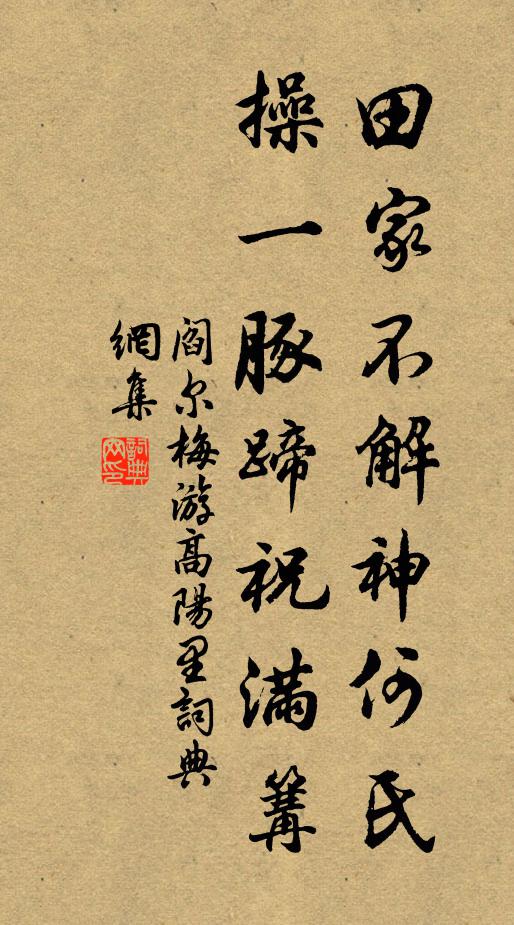 田家不解神何氏
操一豚蹄祝滿篝
閻尔梅游高陽里詞典
網集
詞典
网印